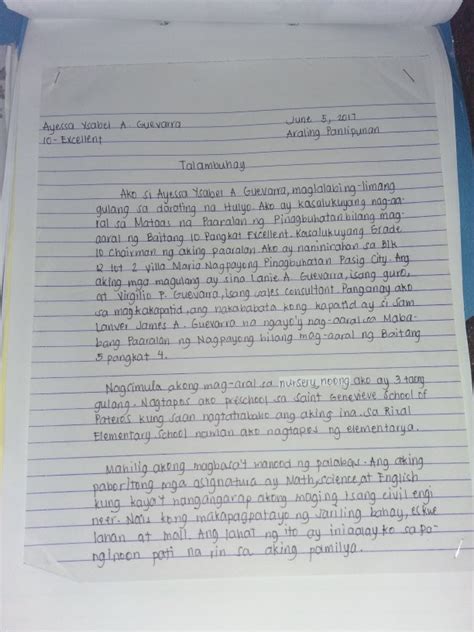 Ayessa Ysabel A. Guevarra June 5, 2017
10- Excellent Araling Panlipunan
Talambuhay
Ako si Ayessa Ysabel A. Guevarra, maglalabing-limang
gulang sa darating na Hulyo. Ako ay kasalukuyang nag-aa-
ral sa Mataas na Paaralan ng Pinagbuhatan bilang mag-
aaral ng Baitang 10 Pangkat Excellent. Kasalukuyang Grade
10 Chairman ng aking paaralan. Ako ay naninirahan sa Blk
12 lot 2 Villa Maria Nagpayong Pinagbuhatan Pasig City. Ang
aking mga magulang ay sina Lanie A. Guevarra, isang guro,
at Virgilio P. Guevarra, isang sales consultant. Panganay ako
sa magkakapatid, ang nakababata kong kapatid ay si Sam
Lanver James A. Guevarra na ngayo'y nag-aaral sa Maba-
bang Paaralan ng Nagpayong bilang mag-aaral ng Baitang
5 pangkat 4.
Nagsimula akong mag-aral sa nursery noong ako ay 3 taong
gulang. Nagtapos ako preschool sa Saint Genevieve School of
Pateros kung saan nagtatrabaho ang aking ina. sa Rizal
Elementary School naman ako nagtapos ng elementarya.
Mahilig akong magbasa't manood ng palabas. Ang aking
paboritong mga asignatura ay Math, science, at English
kung kaya't nangangarap akong maging isang civil engi
neer. Nais kong makapagpatayo ng sariling bahay, eskwe
lahan at mall. Ang lahat ng ito ay iniaalay ko sa pa-
nginoon pati na rin sa aking pamilya.